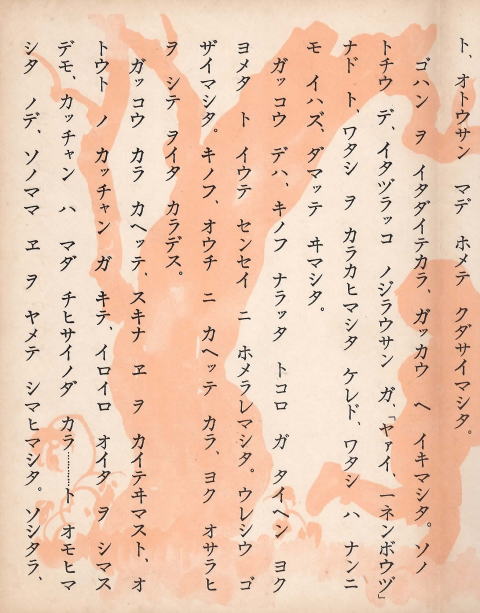 ト、オトウサン マデ ホメテ クダサイマシタ。
ゴハン ヲ イタダイテカラ、ガッカウ ヘ イキマシタ。ソノ
トチウ デ、イタヅラッコ ノジラウサン ガ、「ヤァイ、一ネンボウヅ」
ナド ト、ワタシ ヲ カラカヒマシタ ケレド、ワタシ ハ ナンニ
モ イハズ、ダマッテ ヰマシタ。
ガッコウ デハ、キノフ ナラッタ トコロ ガ タイヘン ヨク
ヨメタ ト イウテ センセイ ニ ホメラレマシタ。ウレシウ ゴ
ザイマシタ。キノフ、オウチ ニ カヘッテ カラ、ヨク オサラヒ
ヲ シテ ヲイタ カラデス。
ガッコウ カラ カヘッテ、スキナ ヱ ヲ カイテヰマスト、オ
トウト ノ カッチャン ガ キテ、イロイロ オイタ ヲ シマス
デモ、カッチャン ハ マダ チヒサイノダ カラ…………ト オモヒマ
シタ ノデ、ソノママ ヱ ヲ ヤメテ シマヒマシタ。ソシタラ、